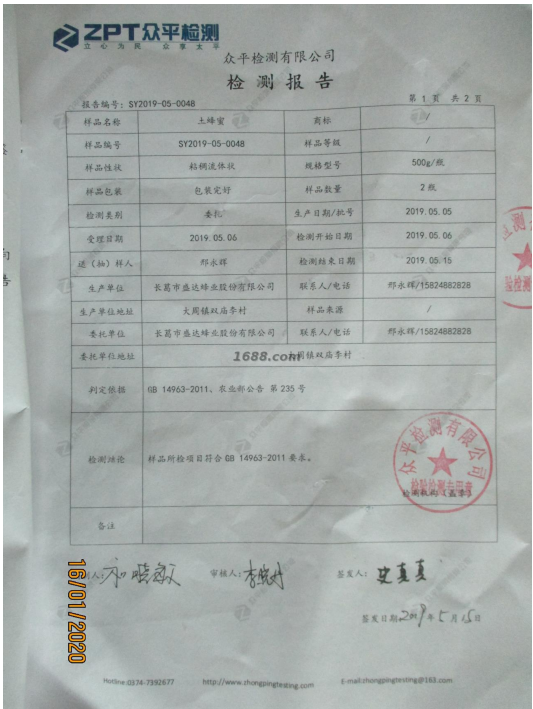 ZPT众平检测
立心为民 众享太平
众平检测有限公司
检测报告
报告编号：SY2019-05-0048 第 1 页 共 2 页
样品名称 土蜂蜜 商标 /
样品编号 SY2019-05-0048 样品等级 /
样品性状 粘稠流体状 规格型号 500g/瓶
样品包装 包装完好 样品数量 2 瓶
检测类别 委托 生产日期/批号 2019.05.05
受理日期 2019.05.06 检测开始日期 2019.05.06
送（抽）样人 邢永辉 检测结束日期 2019.05.15
生产单位 长葛市盛达蜂业股份有限公司 联系人/电话 邢永辉/15824882828
生产单位地址 大周镇双庙李村 样品来源 /
委托单位 长葛市盛达蜂业股份有限公司 联系人/电话 邢永辉/15824882828
委托单位地址 大周镇双庙李村
1688.com
判定依据 GB 14963-2011、农业部公告 第 235 号
检测结论 样品所检项目符合 GB 14963-2011 要求。
众平检测有限公司
检验检测专用章
检测机构（盖章）
备注
人： 审核人： 签发人：史真真
签发日期 2019年 5 月 15 日
16/01/2020
Hotline:0374-7392677 http://www.zhongpingtesting.com E-mail:zhongpingtesting@163.com